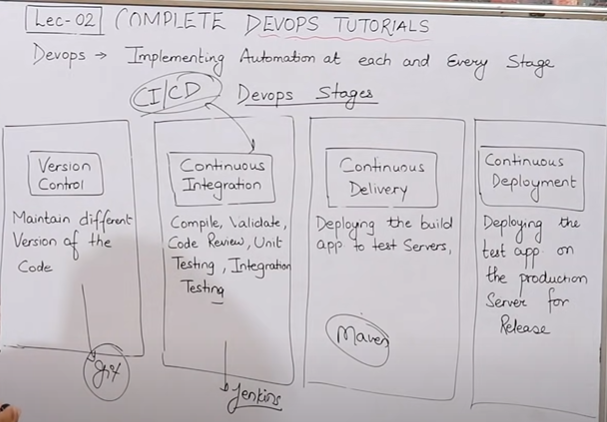 Lec-02 COMPLETE DEVOPS TUTORIALS
Devops → Implementing Automation at each and Every Stage
CI/CD Devops Stages
Version
Control
Maintain different
Version of the
Code
git
Continuous
Integration
Compile, Validate,
Code Review, Unit
Testing, Integration
Testing
Jenkins
Continuous
Delivery
Deploying the build
app to test Servers,
Maven
Continuous
Deployment
Deploying the
test app on
the production
Server for
Release